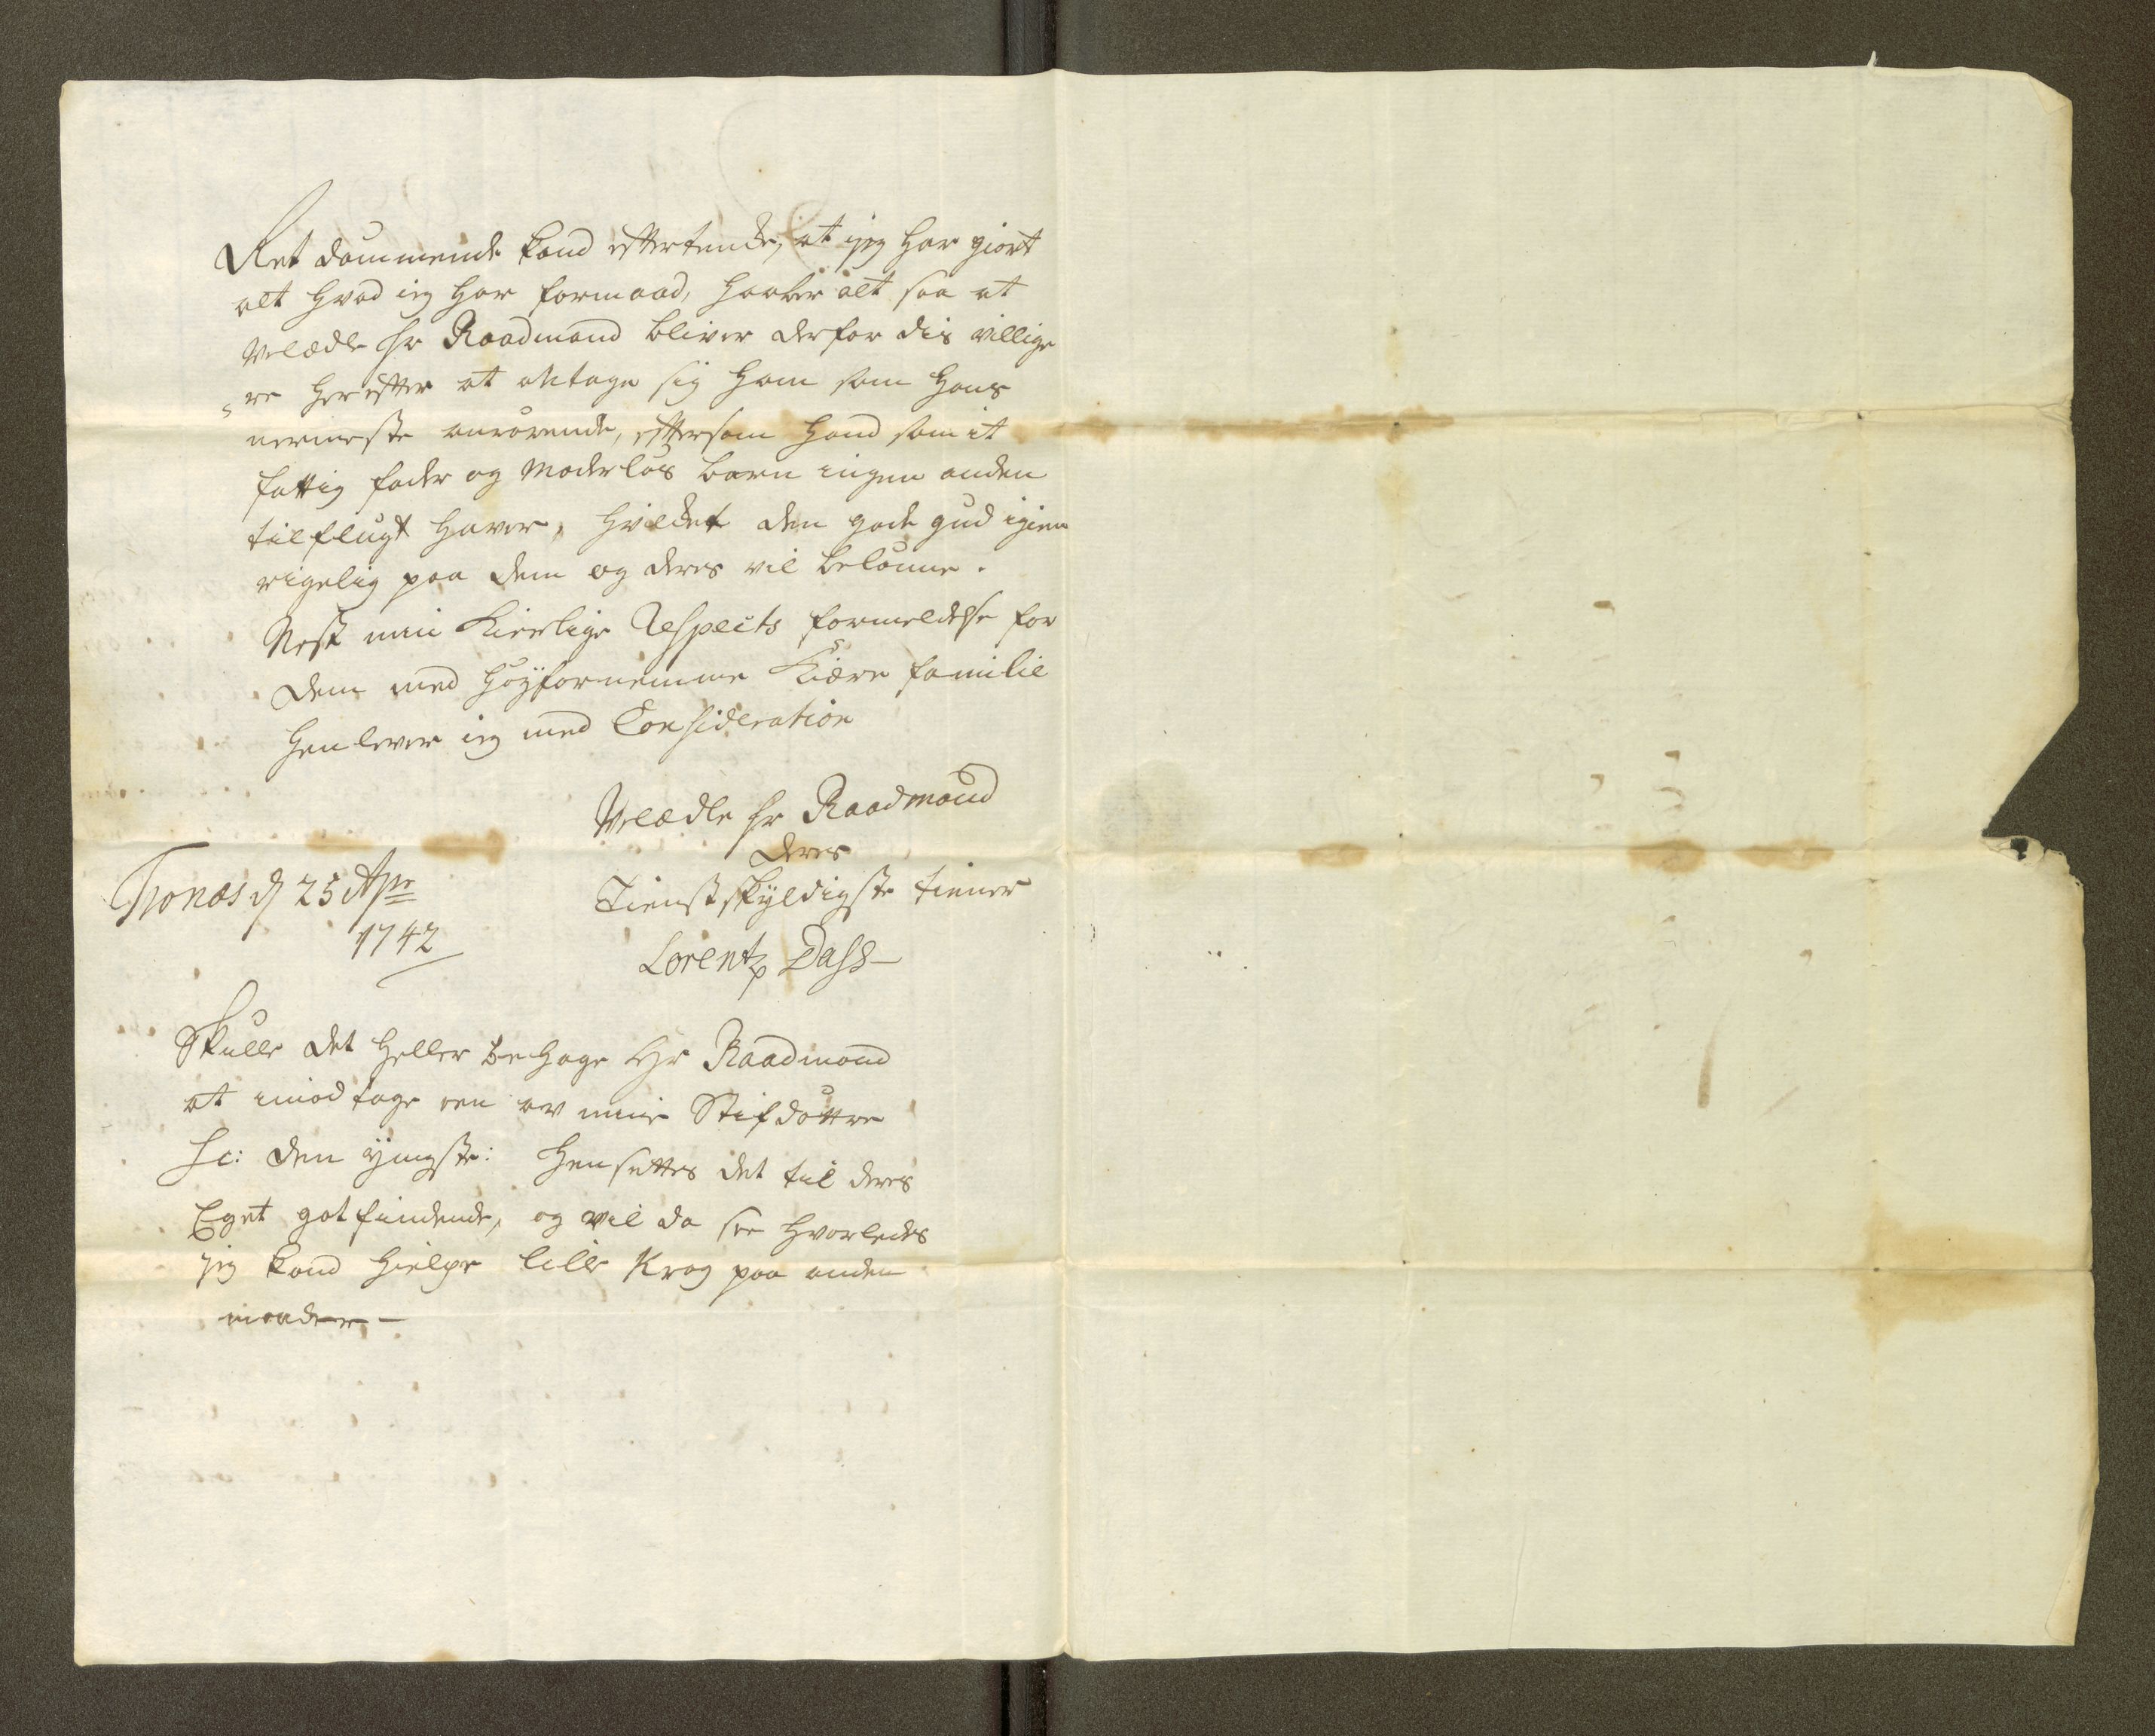 Ret dømmende kand eftertencke, at jeg har giort
alt hvad ieg har formaad, haaber alt saa at
Velædle Hr Raadmand bliver derfor dis villige
re herefter at antage sig ham som hans
nermeste anrørende, eftersom hand som it
fattig fader og Moderløs barn ingen anden
tilflugt haver, hvilcket den gode gud igien
rigelig paa dem og deres vil belønne.
Nest min Kierlige Respects formeldelse for
dem med høyfornemme Kiære familie
henlever ieg med Consideration
Velædle Hr Raadmand
deres
Tienstskyldigste tiener
Lorentz Dass
Tronæs d 25 Apr
1742
Skulle det heller behage Hr Raadmand
at imodtage een av mine Stifdøttre
sc: den yngste: hensettes det til deres
Eget gotfindende, og vil da see hvorledes
jeg kand hielpe lille Krog paa anden
maader